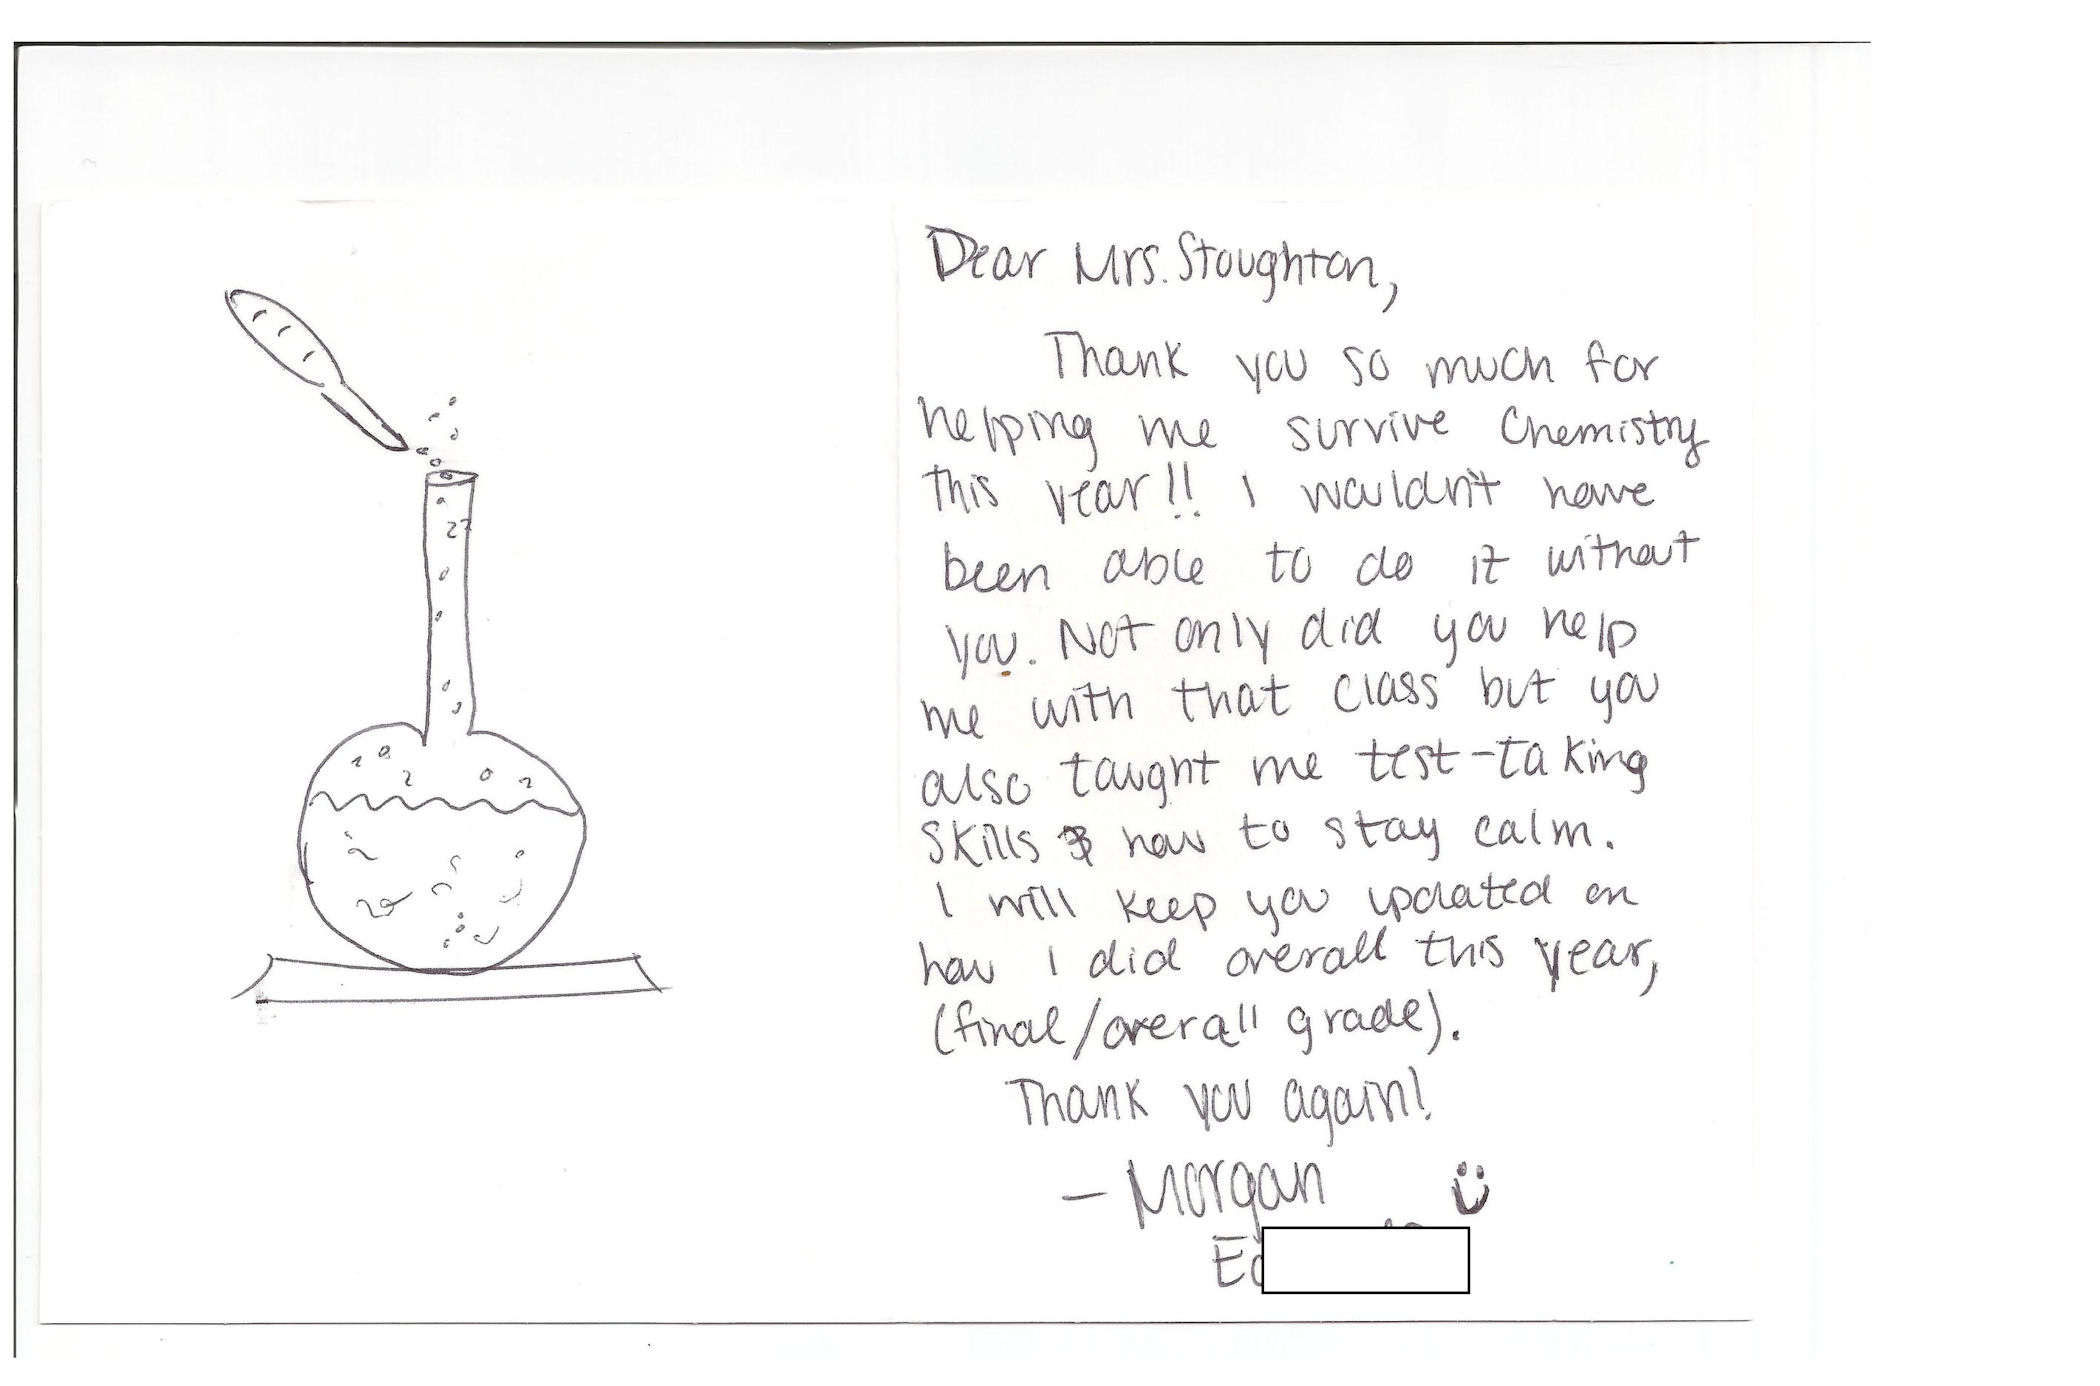 Dear Mrs. Stoughton,
Thank you so much for
helping me survive Chemistry
this year!! I wouldn't have
been able to do it without
you. Not only did you help
me with that class but you
also taught me test-taking
skills & how to stay calm.
I will keep you updated on
how I did overall this year,
(final/overall grade).
Thank you again!
- Morgan